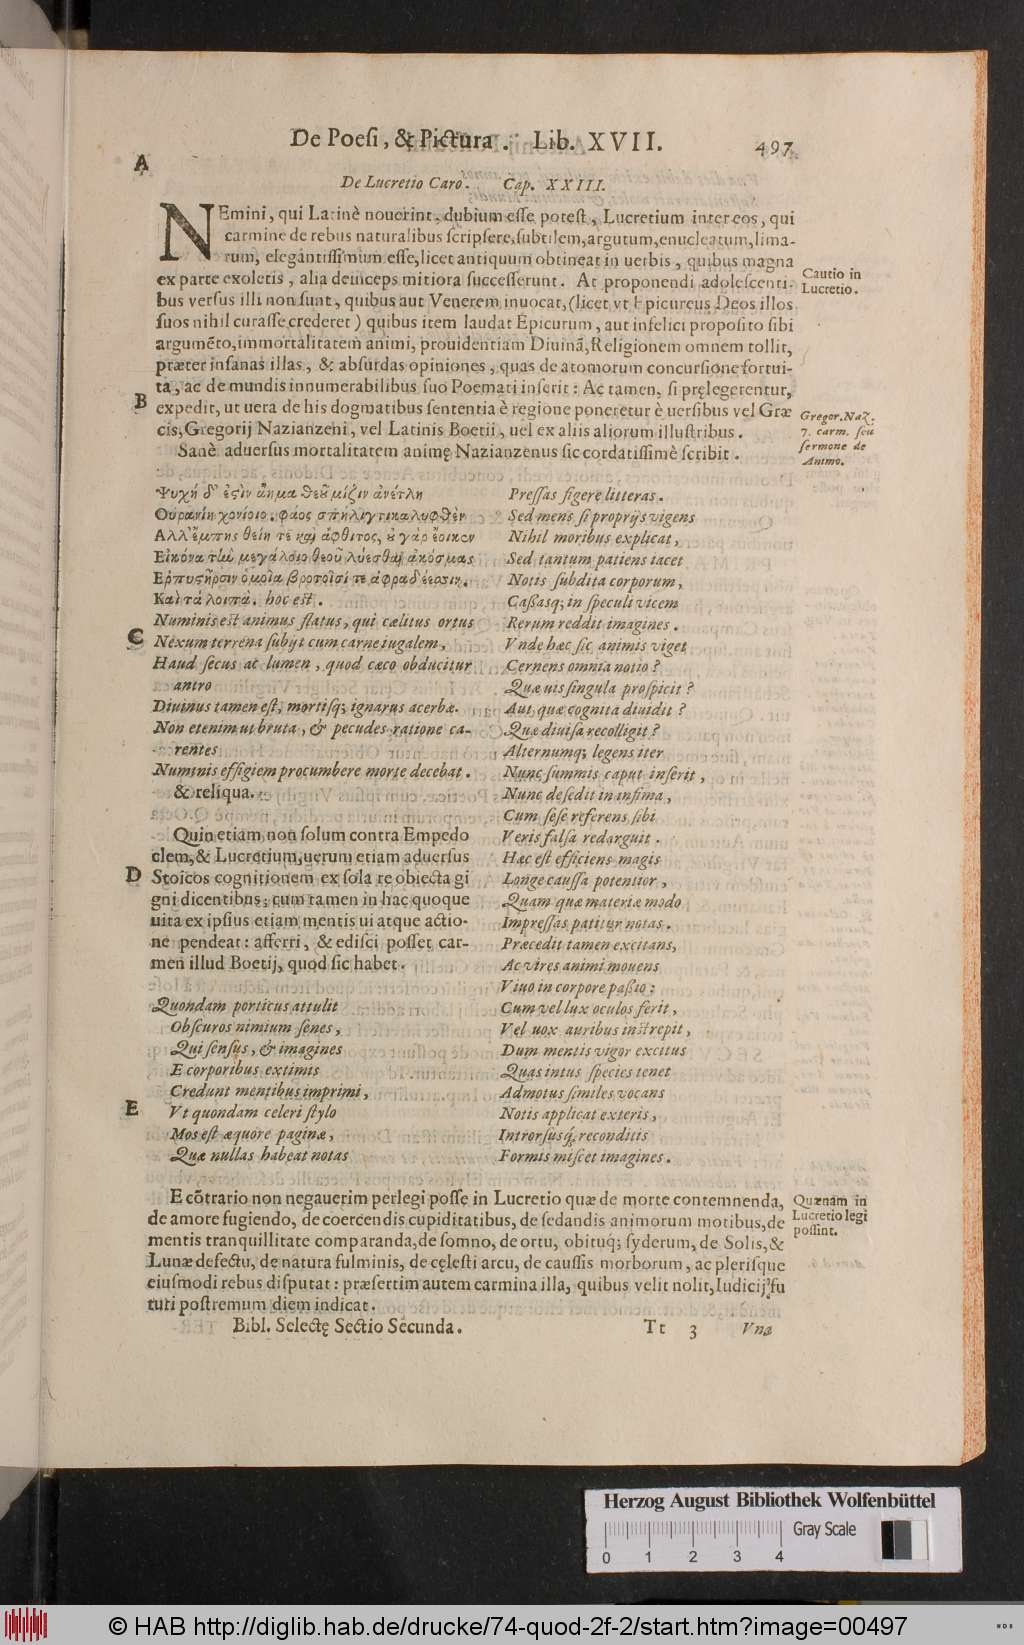 De Poesi, & Pictura. Lib. XVII. 497
A
De Lucretio Caro. Cap. XXIII.
NEmini, qui Latinè nouerint, dubium esse potest, Lucretium inter eos, qui
carmine de rebus naturalibus scripsere, subtilem, argutum, enucleatum, lima-
tum, elegantissimum esse, licet antiquum obtineat in uerbis, quibus magna
ex parte exoletis, alia deinceps mitiora successerunt. At proponendi adolescenti-
bus versus illi non sunt, quibus aut Venerem inuocat, (licet vt Epicureus Deos illos
suos nihil curasse crederet) quibus item laudat Epicurum, aut infelici proposito sibi
argumēto, immortalitatem animi, prouidentiam Diuinā, Religionem omnem tollit,
præter insanas illas, & absurdas opiniones, quas de atomorum concursione fortui-
ta, ac de mundis innumerabilibus suo Poemati inserit: Ac tamen, si pręlegerentur,
expedit, ut uera de his dogmatibus sententia è regione poneretur è uersibus vel Græ
cis, Gregorij Nazianzeni, vel Latinis Boetii, uel ex aliis aliorum illustribus.
Sanè aduersus mortalitatem animę Nazianzenus sic cordatissimè scribit.
Cautio in
Lucretio.
B
Gregor. Naz.
7. carm. seu
sermone de
Animo.
Ψυχή δ' ἐςὶν ἄημα θεȣ͂ μίζιν ἀνέτλη
Οὐρανίη χονίοιο, φάος σπήλιγγι καλυφθὲν
Αλλ' ἔμπης θείη τε καὶ ἄφθιτος, ȣ γὰρ ἔοικεν
Εἰκόνα τὼ μεγάλοιο θεοῦ λύεσθαι ἀκόσμας
Ερπυςῆρσιν ὁμοῖα βροτοῖσί τε ἀφραδέεσσιν.
Καὶ τὰ λοιπά. hoc est.
Numinis est animus flatus, qui cælitus ortus
C
Nexum terrena subijt cum carne iugalem,
Haud secus ac lumen, quod cæco obducitur
antro
Diuinus tamen est, mortisq; ignarus acerbæ.
Non etenim ut bruta, & pecudes ratione ca-
rentes
Numinis effigiem procumbere morte decebat.
& reliqua.
Quin etiam non solum contra Empedo
clem, & Lucretium, uerum etiam aduersus
D
Stoicos cognitionem ex sola re obiecta gi
gni dicentibus; cum tamen in hac quoque
uita ex ipsius etiam mentis ui atque actio-
ne pendeat: afferri, & edisci posset car-
men illud Boetij, quod sic habet.
Quondam porticus attulit
Obscuros nimium senes,
Qui sensus, & imagines
E corporibus extimis
Credunt mentibus imprimi,
E
Vt quondam celeri stylo
Mos est æquore paginæ,
Quæ nullas habeat notas
Pressas figere litteras.
Sed mens si proprijs vigens
Nihil moribus explicat,
Sed tantum patiens iacet
Notis subdita corporum,
Cassasq; in speculi vicem
Rerum reddit imagines.
Vnde hæc sic animis viget
Cernens omnia notio?
Quæ uis singula prospicit?
Aut quæ cognita diuidit?
Quæ diuisa recolligit?
Alternumq; legens iter
Nunc summis caput inserit,
Nunc desedit in infima,
Cum sese referens sibi
Veris falsa redarguit.
Hæc est efficiens magis
Longe caussa potentior,
Quam quæ materiæ modo
Impressas patitur notas.
Præcedit tamen excitans,
Ac vires animi mouens
Viuo in corpore passio:
Cum vel lux oculos ferit,
Vel uox auribus instrepit,
Dum mentis vigor excitus
Quas intus species tenet
Admotus similes vocans
Notis applicat exteris,
Introrsusq́. reconditis
Formis miscet imagines.
E cōtrario non negauerim perlegi posse in Lucretio quæ de morte contemnenda,
de amore fugiendo, de coercendis cupiditatibus, de sedandis animorum motibus, de
mentis tranquillitate comparanda, de somno, de ortu, obituq́; syderum, de Solis, &
Lunæ defectu, de natura fulminis, de cęlesti arcu, de caussis morborum, ac plerisque
eiusmodi rebus disputat: præsertim autem carmina illa, quibus velit nolit, Iudicij fu
turi postremum diem indicat.
Quænam in
Lucretio legi
possint.
Bibl. Selectę Sectio Secunda. Tt 3 Vna
Herzog August Bibliothek Wolfenbüttel
0 1 2 3 4 Gray Scale
© HAB http://diglib.hab.de/drucke/74-quod-2f-2/start.htm?image=00497